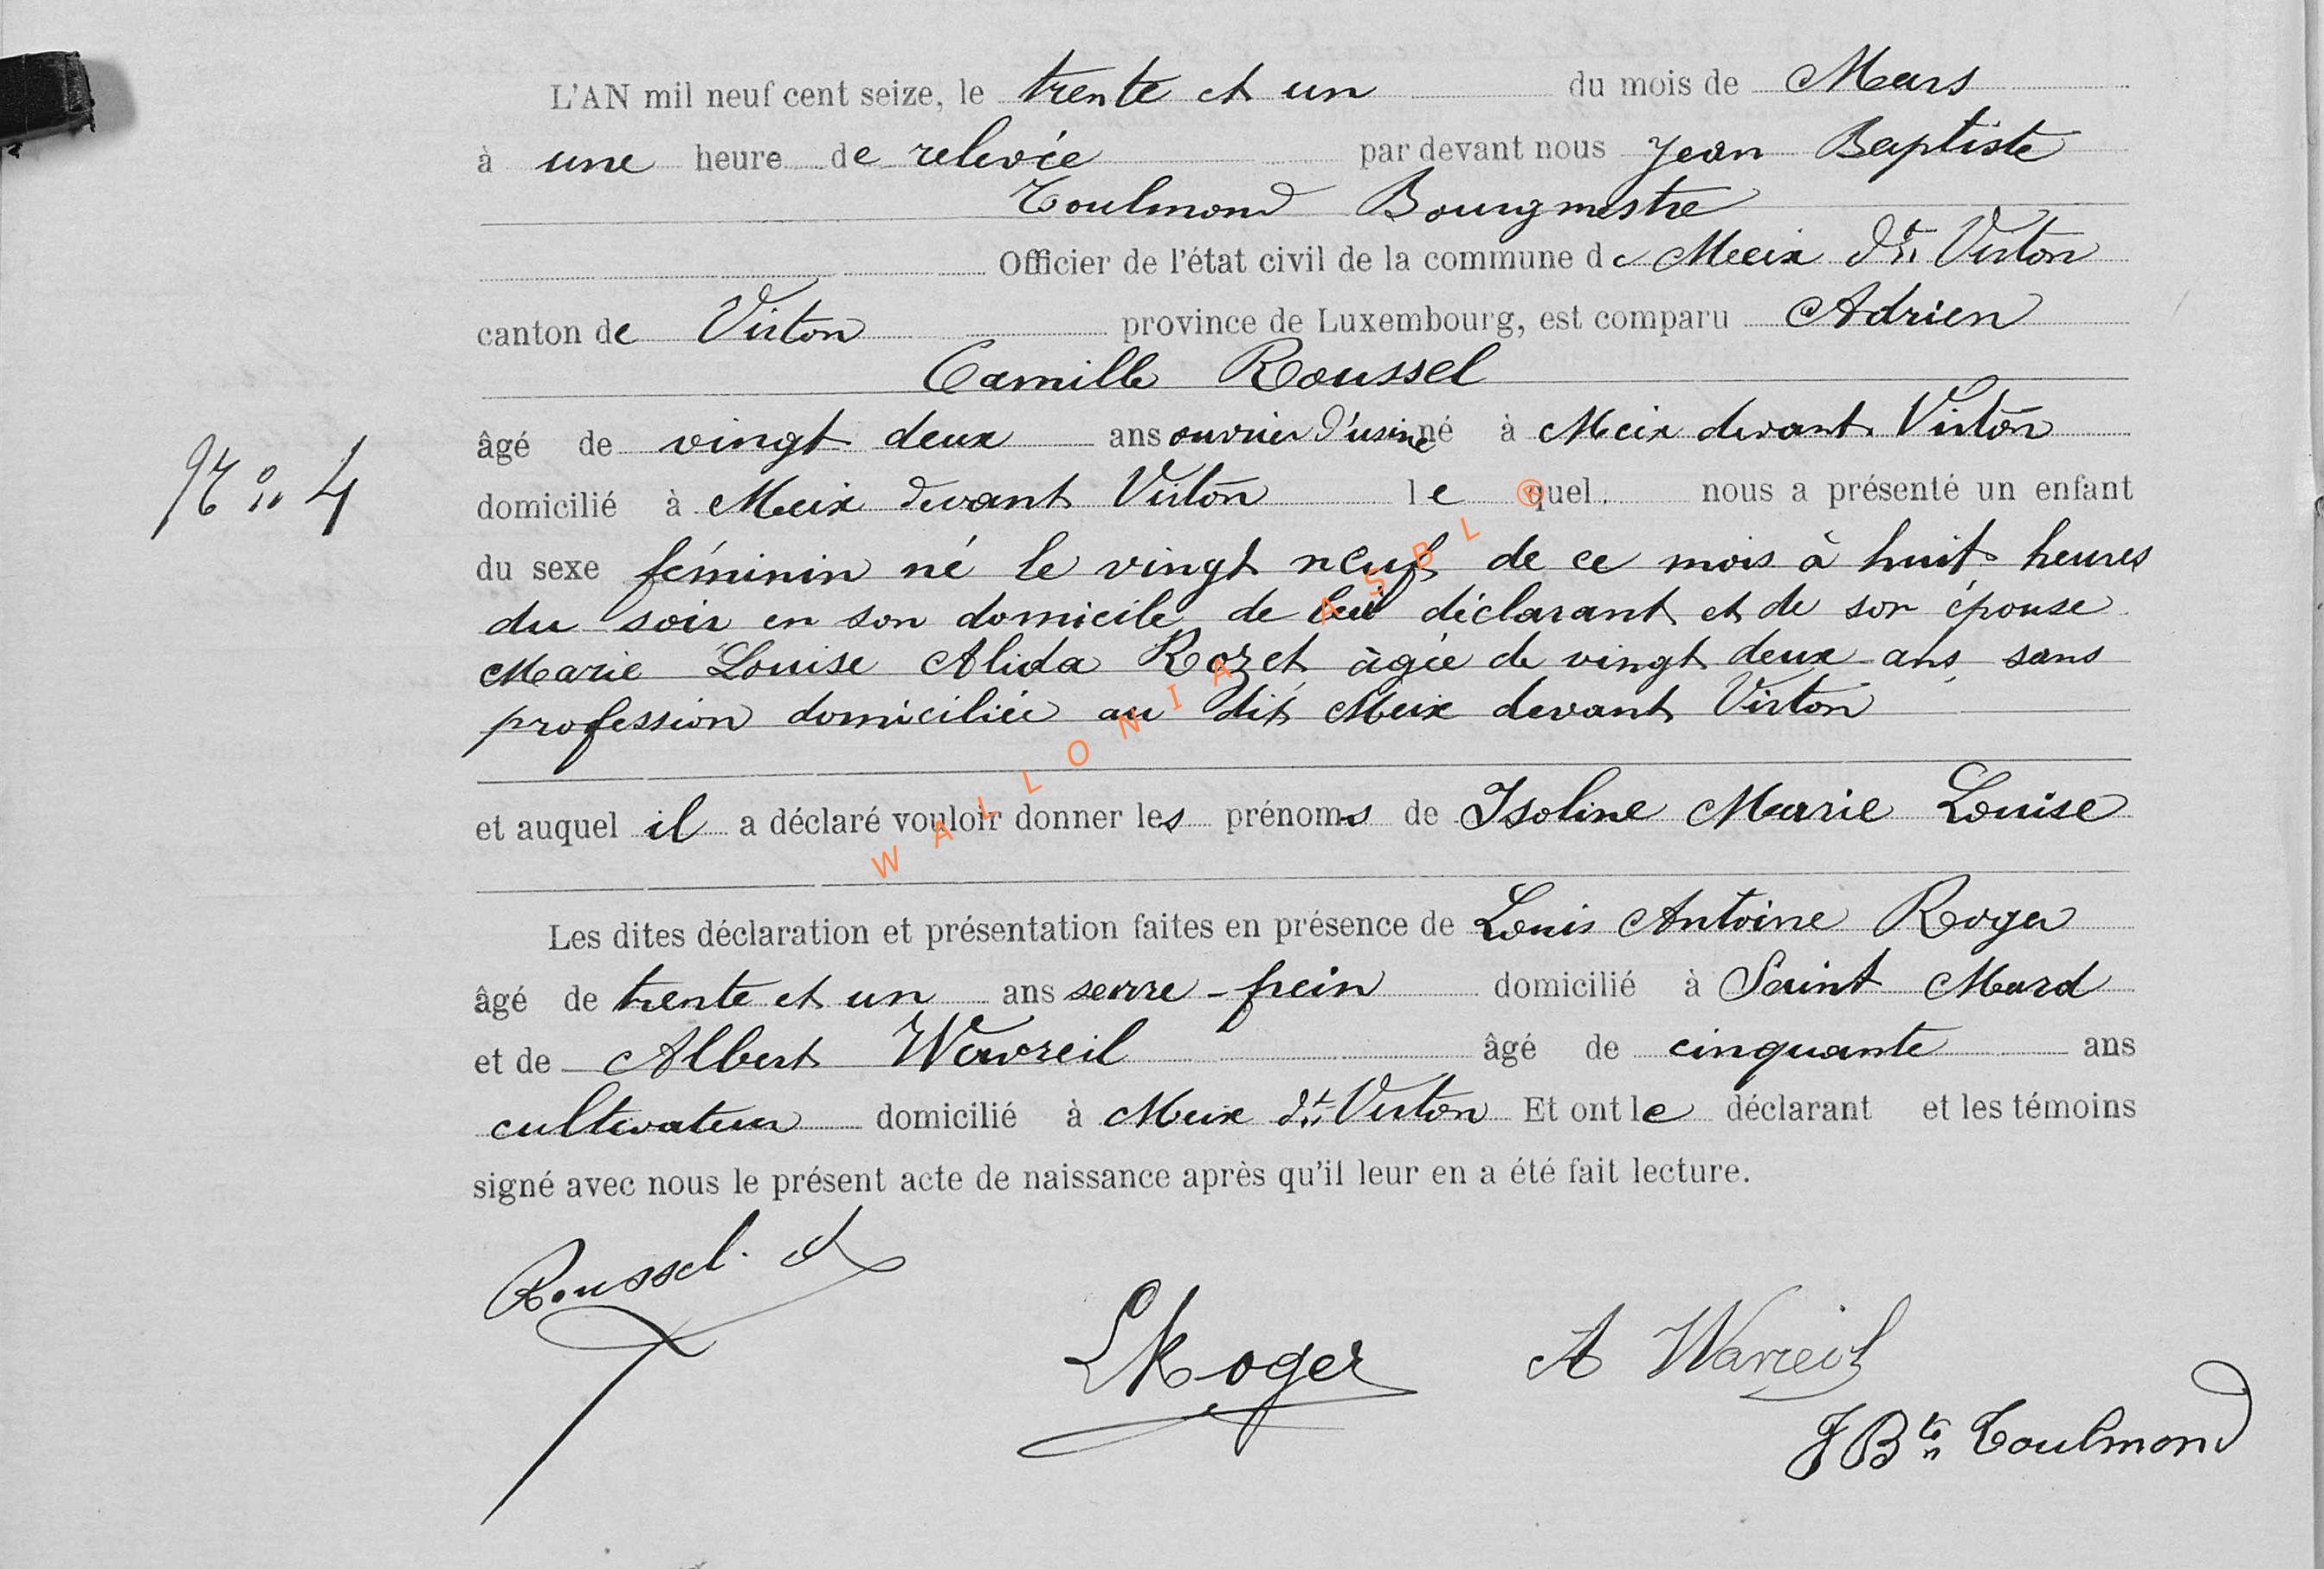 L'AN mil neuf cent seize, le trente et un du mois de Mars
à une heure de relevée par devant nous Jean Baptiste
Toulmond Bourgmestre
Officier de l'état civil de la commune de Meix dt. Virton
canton de Virton province de Luxembourg, est comparu Adrien
Camille Roussel
âgé de vingt deux ans ouvrier d'usine né à Meix devant Virton
No 4
domicilié à Meix devant Virton lequel nous a présenté un enfant
du sexe féminin né le vingt neuf de ce mois à huit heures
du soir en son domicile de lui déclarant et de son épouse
Marie Louise Alida Rozet âgée de vingt deux ans, sans
profession domiciliée au dit Meix devant Virton
et auquel il a déclaré vouloir donner les prénoms de Isoline Marie Louise
WALLONIA ASBL ®
Les dites déclaration et présentation faites en présence de Louis Antoine Roger
âgé de trente et un ans serre-frein domicilié à Saint Mard
et de Albert Wavreil âgé de cinquante ans
cultivateur domicilié à Meix dt Virton Et ont le déclarant et les témoins
signé avec nous le présent acte de naissance après qu'il leur en a été fait lecture.
Roussel. A
L Roger A Wavreil
J Bte Toulmond